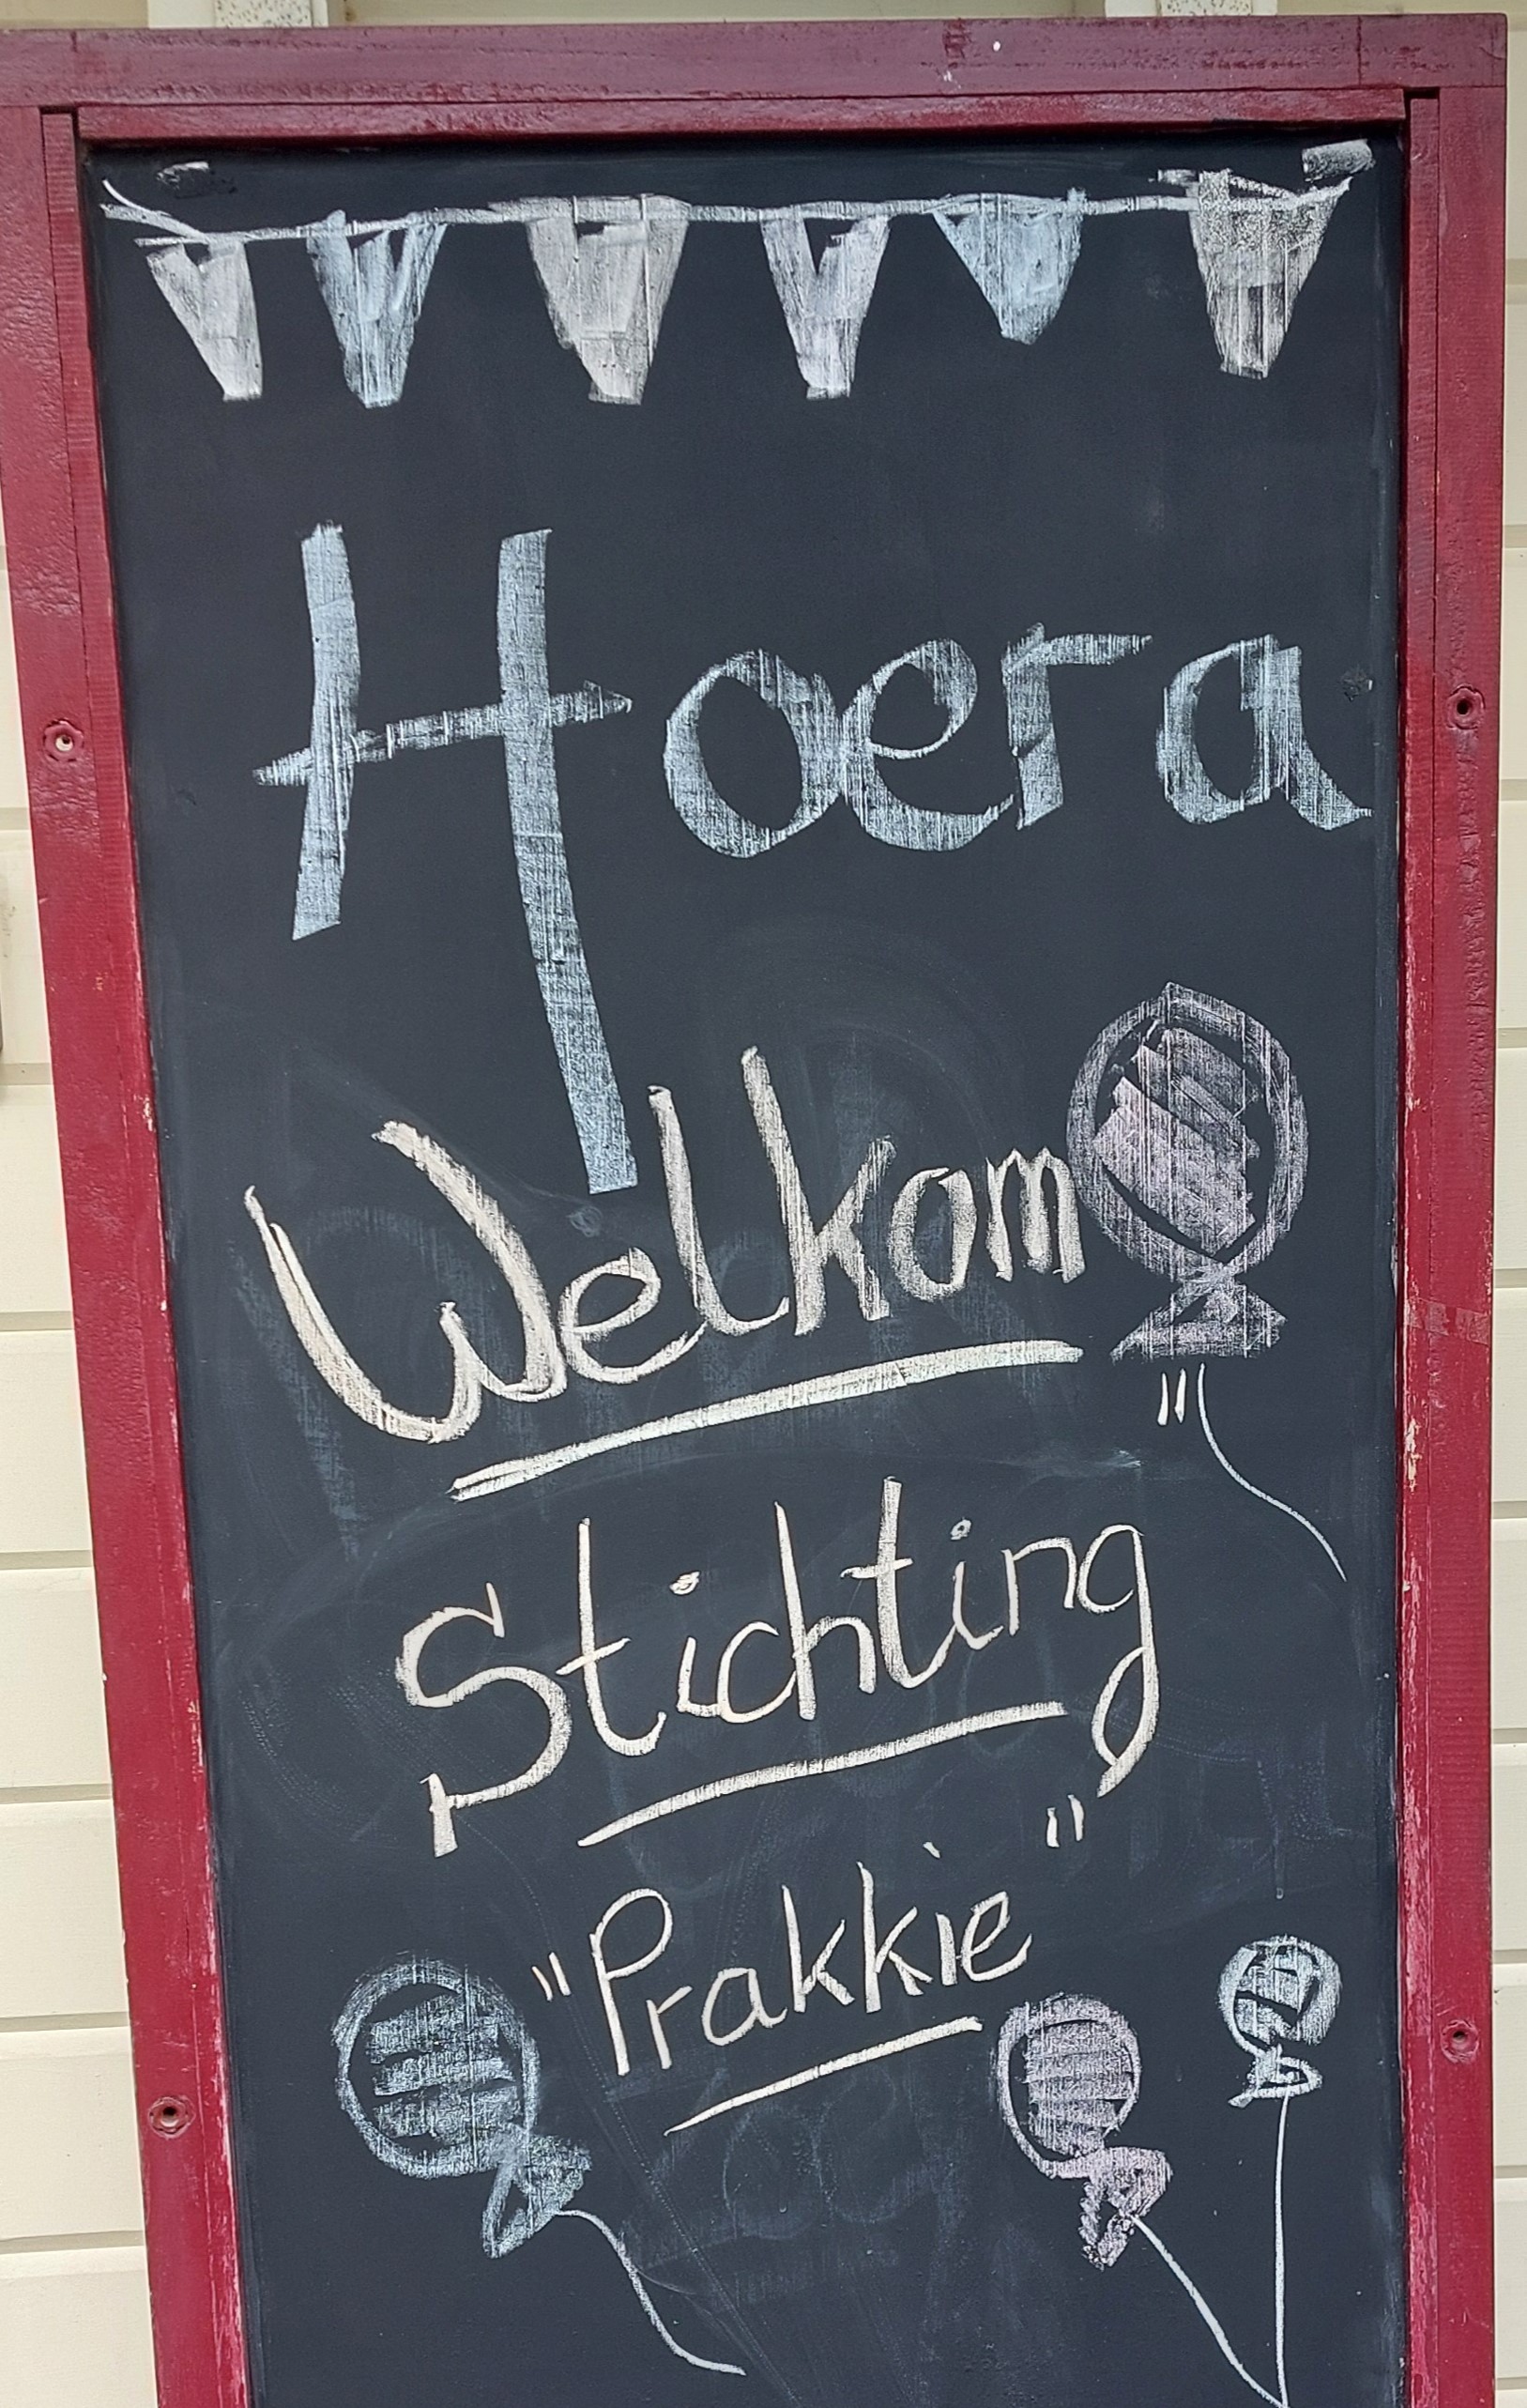 Hoera
Welkom "
Stichting
"Prakkie"